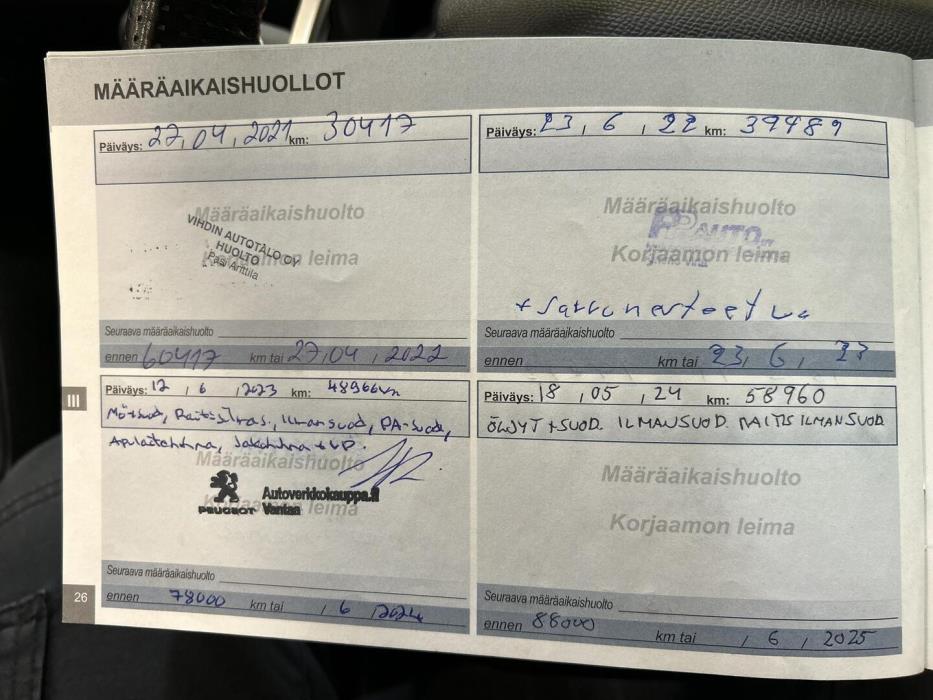 MÄÄRÄAIKAISHUOLLOT
Päiväys: 27,04,2021 km: 30417
Määräaikaishuolto
Korjaamon leima
VIHDIN AUTOTALO OY
HUOLTO
Pasi Arttila
Seuraava määräaikaishuolto
ennen 60417 km tai 27,04,2022
Päiväys: 23,6,22 km: 39489
Määräaikaishuolto
AUTO
Korjaamon leima
Seuraava määräaikaishuolto
ennen km tai 23,6,23
III
Päiväys: 12,6,2023 km: 48966km
Ilmansuod,
Määräaikaishuolto
leima
PEUGEOT
Autoverkkokauppa.fi
Vantaa
Seuraava määräaikaishuolto
26
ennen 78000 km tai ,6,2024
Päiväys: 18,05,24 km: 58960
ÖLJYT +SUOD. ILMANSUOD. RAITIS ILMANSUOD.
Määräaikaishuolto
Korjaamon leima
Seuraava määräaikaishuolto
ennen 88000 km tai ,6,2025